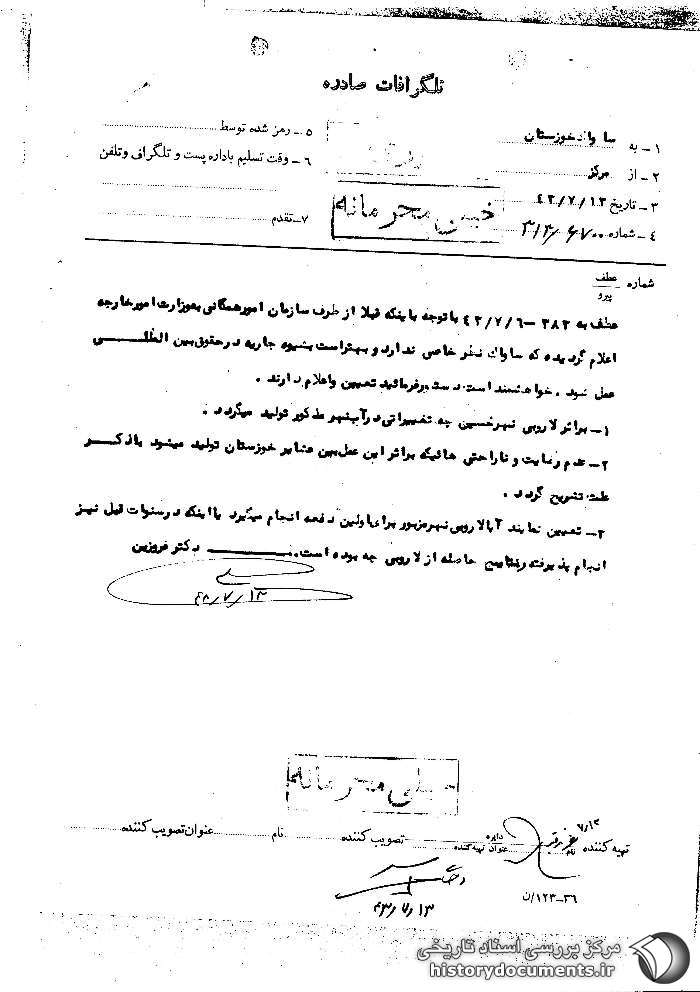 تلگرافات صادره
۱ـ به ساواک خوزستان
۲ـ از مرکز
۳ـ تاریخ ۴۳/۷/۱۳
۴ـ شماره
۵ـ رمز شده توسط
۶ـ وقت تسلیم باداره پست و تلگراف و تلفن
۷ـ تقدم
خیلی محرمانه
شماره عطف
پیرو
عطف به ۳۸۲ – ۴۳/۷/۶ با توجه باینکه قبلا از طرف سازمان امور همگانی بوزارت امور خارجه
اعلام گردیده که ساواک نظر خاصی ندارد و بهتر است بشیوه جاریه در حقوق بین المللی
عمل شود . خواهشمند است دستور فرمائید تعیین و اعلام دارند .
۱ـ براثر لاروبی نهر خسین چه تغییراتی در آب نهر مذکور تولید میگردد .
۲ـ عدم رضایت و ناراحتی هائیکه براثر این عمل بین عشایر خوزستان تولید میشود با ذکر
علت تشریح گردد .
۳ـ تعیین نمایند آیا لاروبی نهر مزبور برای اولین دفعه انجام میگیرد یا اینکه در سنوات قبل نیز
انجام پذیرفته و نتایج حاصله از لاروبی چه بوده است . دکتر فروزین
۴۳/۷/۱۳
خیلی محرمانه
۷/۱۳
تهیه کننده نام دایره عنوان تهیه کننده تصویب کننده نام عنوان تصویب کننده
۴۳/۷/۱۳
۳۶–۱۲۳/ن
مرکز بررسی اسناد تاریخی
historydocuments.ir